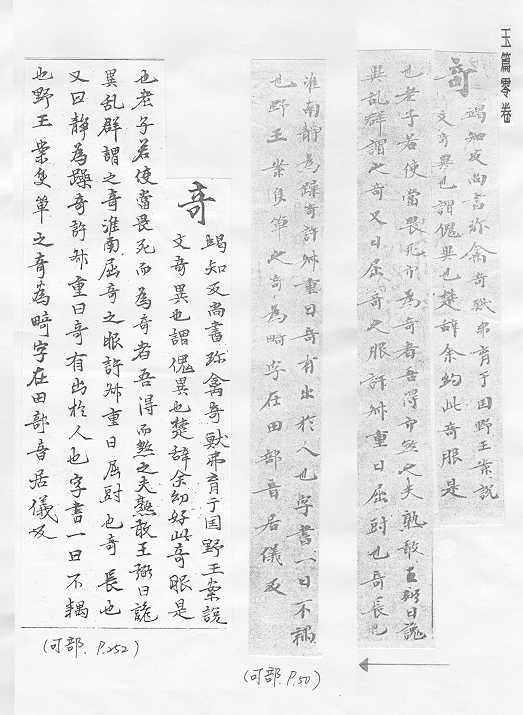 玉篇零卷
奇
竭知反尚書珎禽奇獸弗育于国野王案說
文奇異也謂傀異也楚辞余幼此奇服是
也老子若使當畏死而為奇者吾得而煞之夫孰敢王弼曰詭
異乱群謂之奇又曰屈奇之服許叔重曰屈尌也奇長也
淮南静為躁奇許叔重曰奇有出於人也字書一曰不耦
也野王案隻單之奇為畸字在田部音居儀反
(可部. P.50)
奇
竭知反尚書珎禽奇獸弗育于国野王案說
文奇異也謂傀異也楚辞余幼好此奇服是
也老子若使當畏死而為奇者吾得而煞之夫孰敢王弼曰詭
異乱群謂之奇淮南屈奇之服許叔重曰屈尌也奇長也
又曰静為躁奇許叔重曰奇有出於人也字書一曰不耦
也野王案隻單之奇為畸字在田部音居儀反
(可部. P.252)